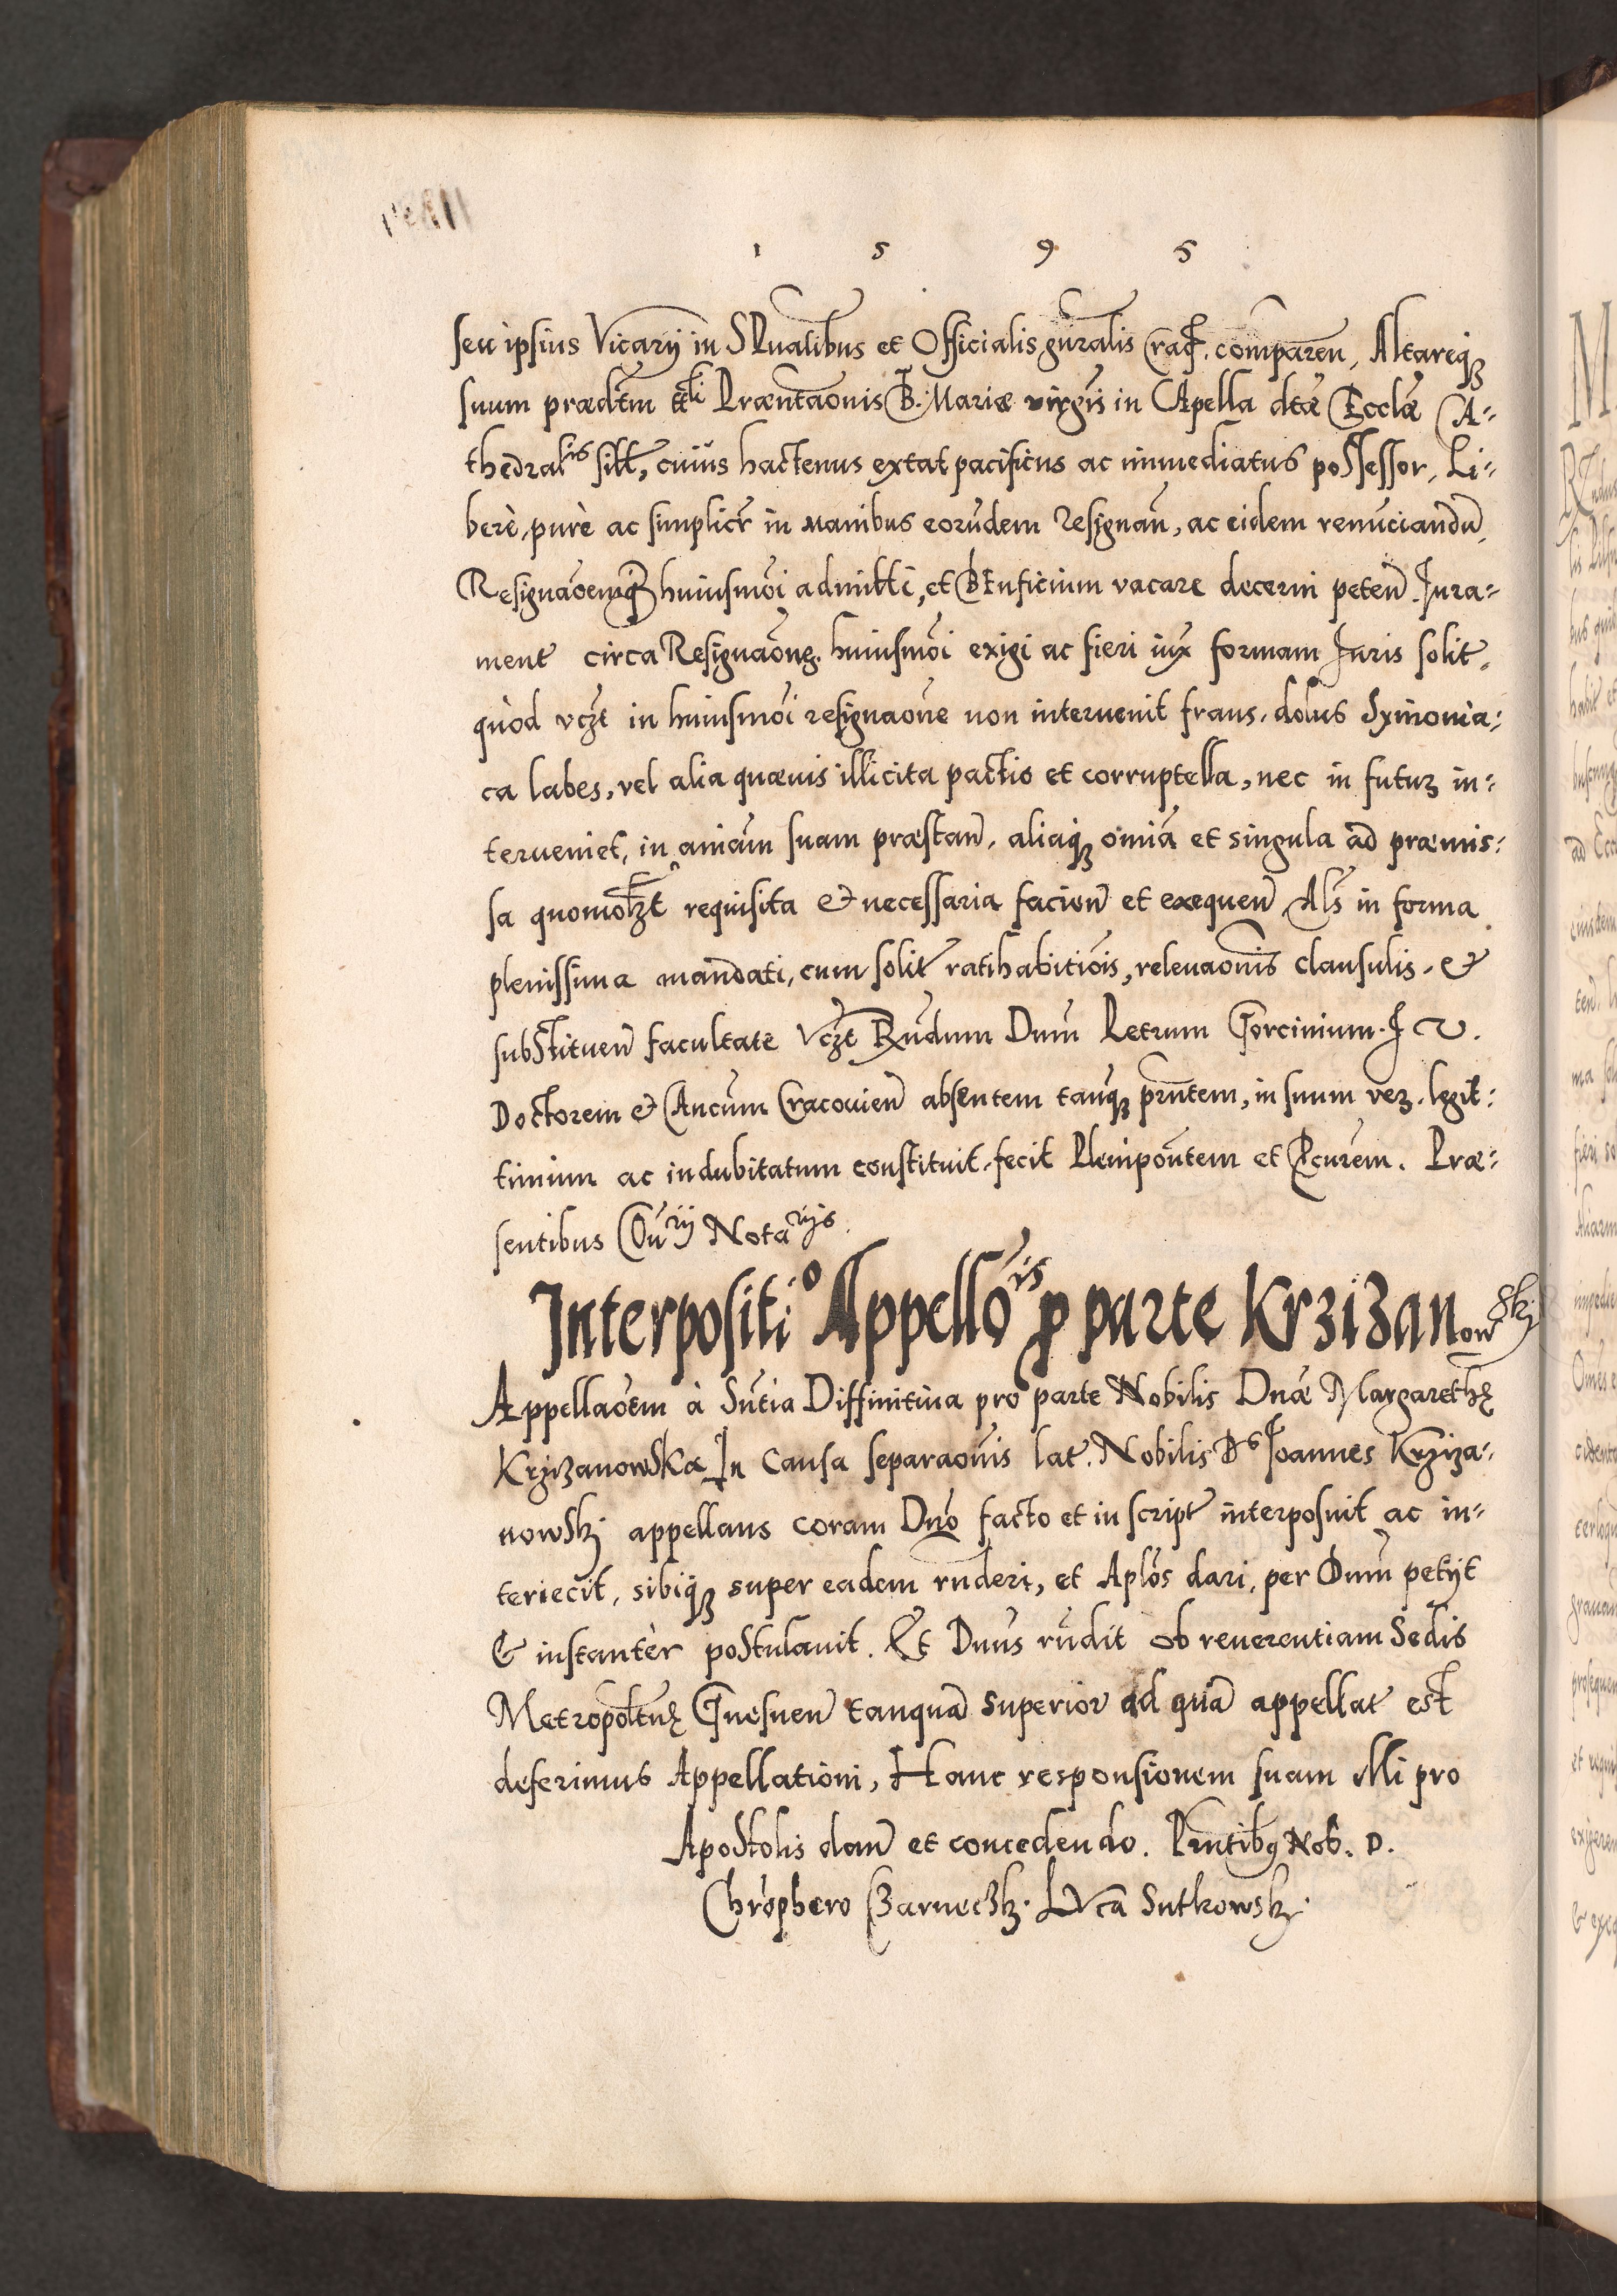 1 5 9 5
seu ipsius Vicarij in SPualibus et Officialis gnralis Crac. comparen, Altareq
suum prædtm ttli Præntaonis B. Mariæ virgis in CApella dtæ Ecclæ CA-
thedralis sitt, cuius hactenus extat pacificus ac immediatus possessor, Li-
berè, purè ac simplicr in manibus eorundem resignan, ac eidem renunciandu,
Resignaoemq huiusmoi admitti, et BEnficium vacare decerni peten. Iura-
ment circa Resignaone huiusmoi exigi ac fieri iux formam Iuris solit,
quòd vczt in huiusmoi resignaone non interuenit fraus, dolus Symonia-
ca labes, vel alia quæuis illicita pactio et corruptella, nec in futuz in-
terueniet, in aniam suam præstan, aliaq omia et singula ad præmis-
sa quomolzt requisita & necessaria facien et exequen Als in forma
plenissima mandati, cum solit ratihabitiois, releuaonis clausulis, &
substituen facultate vczt Rndum Dnm Petrum Gorcinium I V.
Doctorem & Cancum Cracouien absentem tanq prntem, in suum vez. legit-
timum ac indubitatum constituit, fecit Plenipontem et Pcurem. Præ-
sentibus Curij Notarijs.
Interpositio Appellois p parte Krzizanowskj
Appellaoem à Sntia Diffinitiua pro parte Nobilis Dnæ Margarethę
Krzizanowska In Causa separaonis lat. Nobilis Ds Ioannes Krziza-
nowskj appellans coram Dno facto et in script interposuit ac in-
teriecit, sibiq super eadem rnderi, et Aplos dari, per Dnm petijt
& instantèr postulauit. Et Dnus rndit ob reuerentiam Sedis
Metropoltnę Gnesnen tanquā superior ad quā appellat est
deferimus Appellationi, Hanc responsionem suam illi pro
Apostolis dan et concedendo. Pntibq Nob. D.
Chrophero Czarneckj. LVca Sutkowskj.